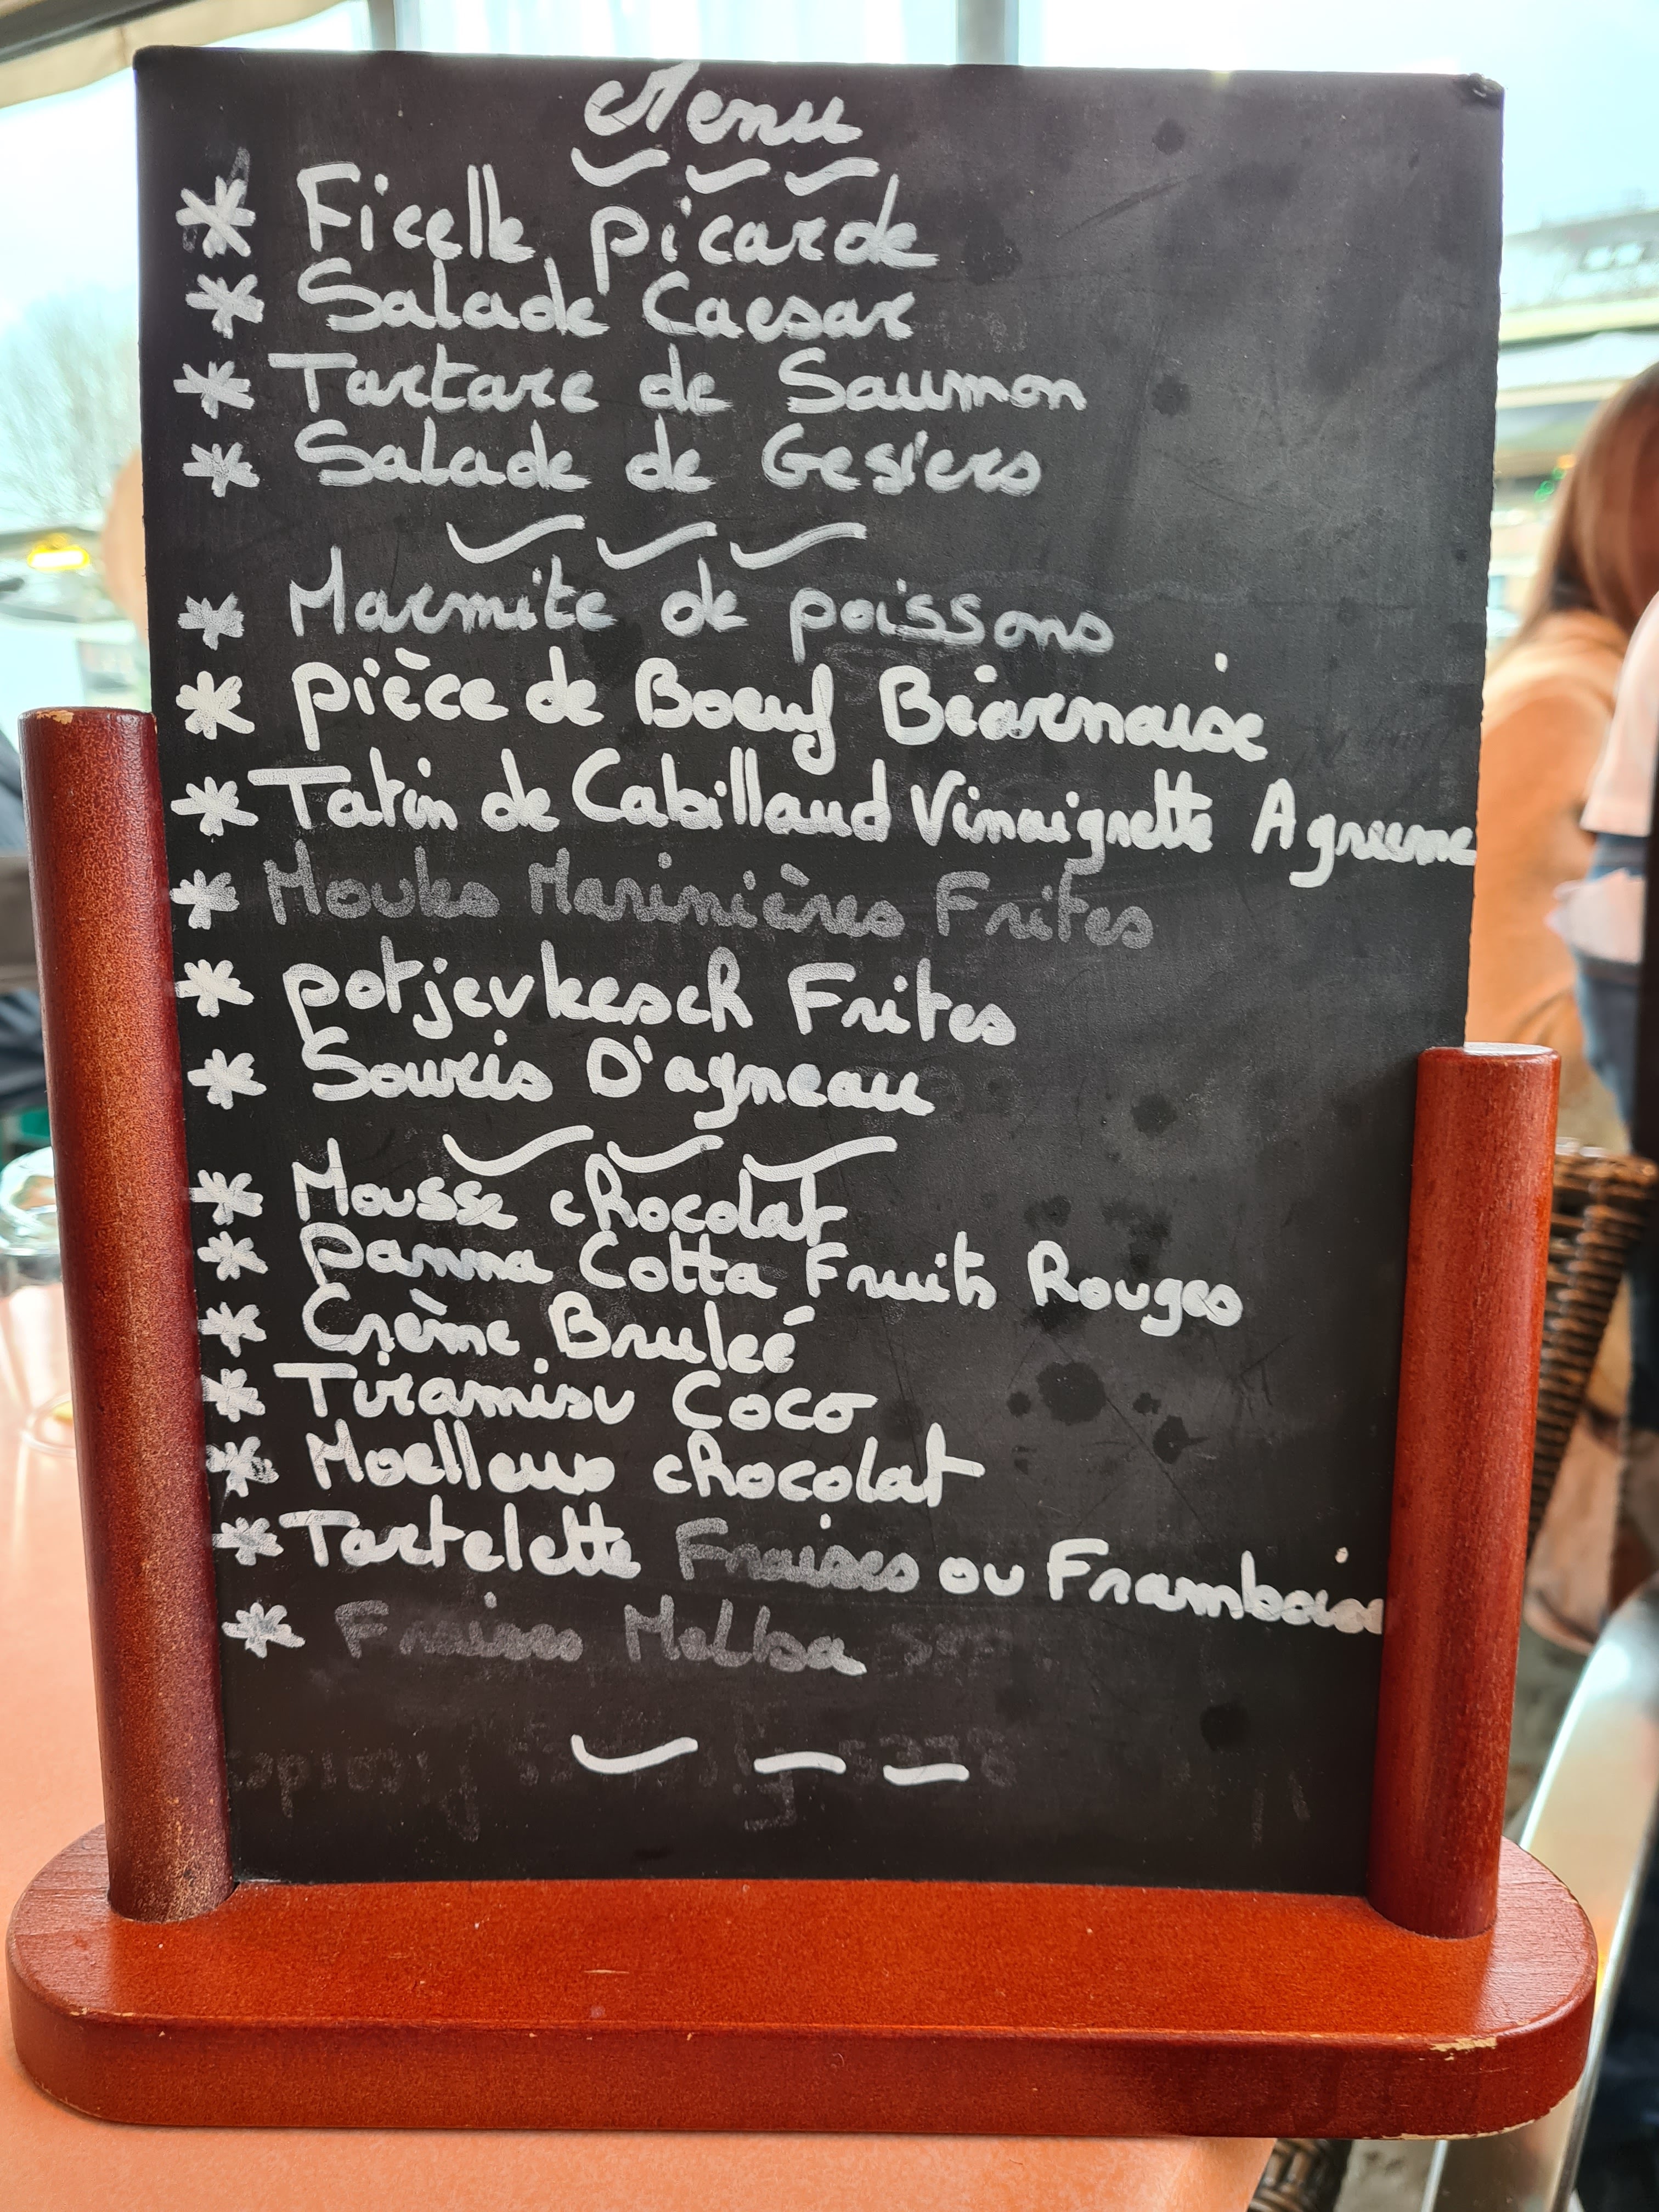 Menu
Ficelle picarde
Salade Caesar
Tartare de Saumon
Salade de Gesiers
Marmite de poissons
pièce de Boeuf Béarnaise
Tatin de Cabillaud Vinaigrette Agrume
Moules Marinières Frites
potjevkesch Frites
Souris D'agneau
Mousse chocolat
panna Cotta Fruits Rouges
Crème Bruleé
Tiramisu Coco
Moelleux chocolat
Tartelette Fraises ou Framboises
Fraises Melba